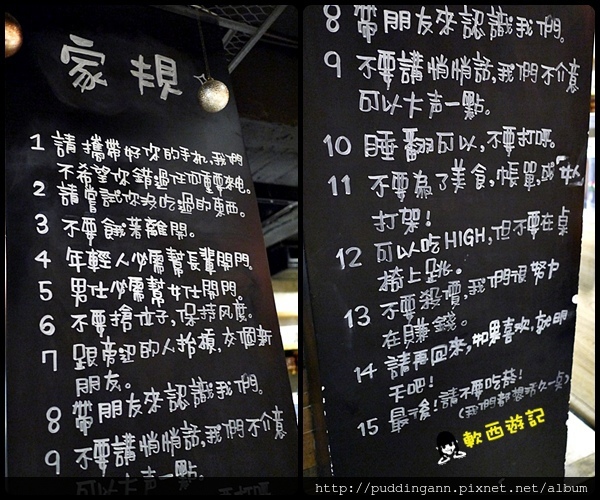 家規
1 請攜帶好你的手机,我們
不希望你錯過任何重要來电。
2 請嘗試你沒吃過的東西。
3 不要餓著離開。
4 年輕人必需幫長輩開門。
5 男仕必需幫女仕開門。
6 不要搶位子,保持风度。
7 跟帶的人抬槓,交個新
朋友。
8 帶朋友來認識我們。
9 不要講悄悄話,我們不介意
可以大声一點。
8 帶朋友來認識我們。
9 不要講悄悄話,我們不介意
可以大声一點。
10 睡翻可以,不要打呼。
11 不要為了美食,帳單,或女人
打架!
12 可以吃HIGH,但不要在桌
椅上跳。
13 不要殺價,我們很努力
在賺錢。
14 請再回來,如果喜欢,就明
天吧!
15 最後!請不要吃菸!
(我們都想活久一点)
軟西遊記
http://puddingann.pixnet.net/album